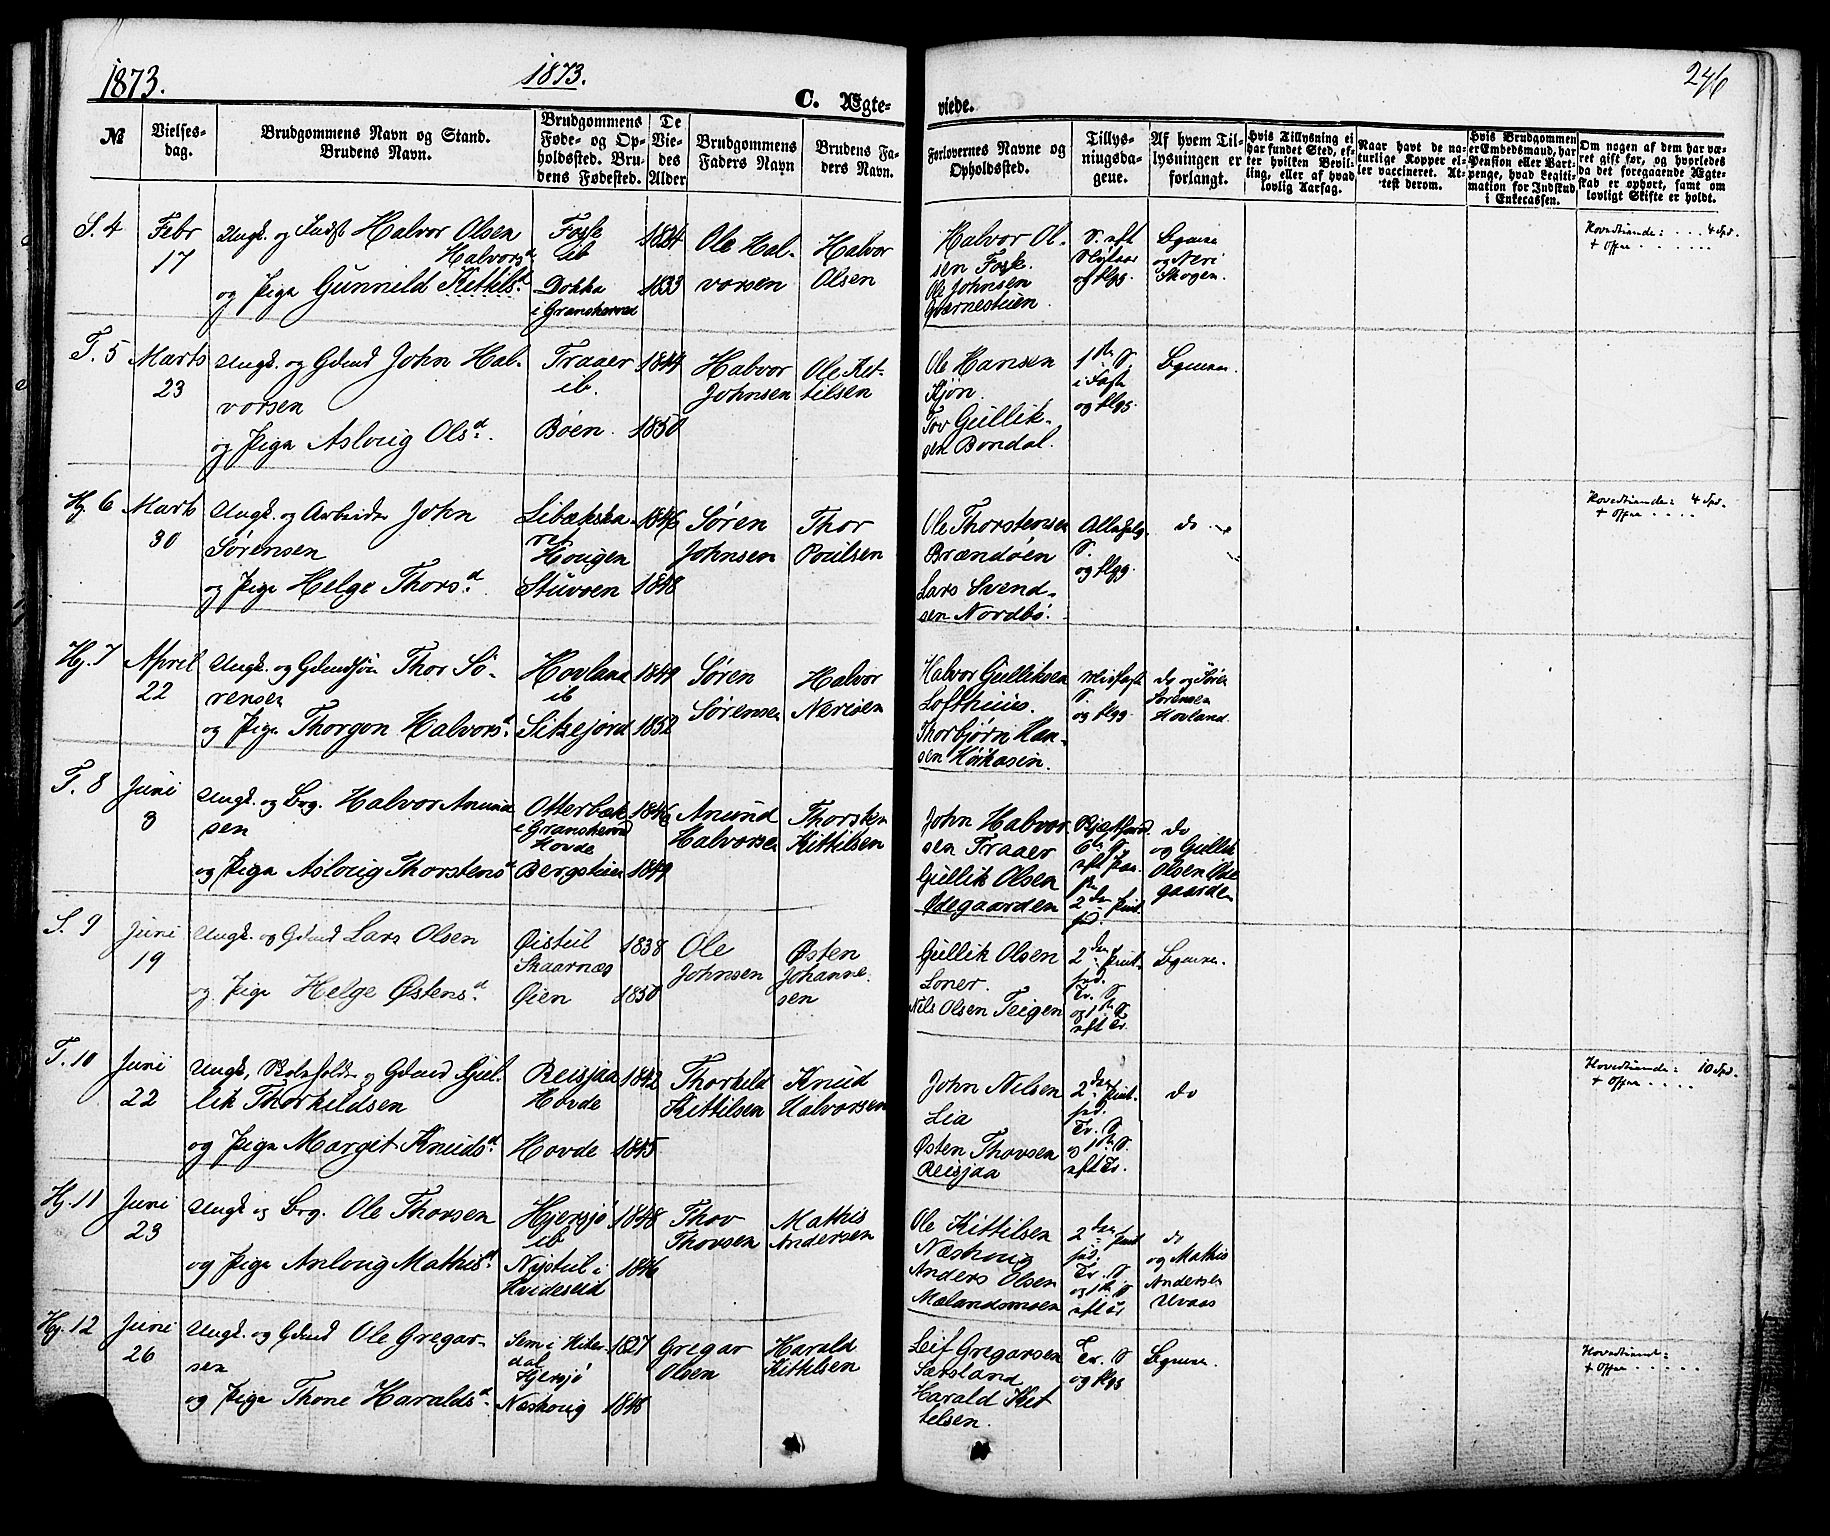 1873.
1873.
C. Ægte-
viede.
246
№
Vielses-
dag.
Brudgommens Navn og Stand.
Brudens Navn.
Brudgommens
Føde- og Op-
holdssted. Bru-
dens Fødested.
De
Vie-
des
Alder
Brudgommens
Faders Navn
Brudens Fa-
ders Navn.
Forlovernes Navne og
Opholdssted.
Tillys-
ningsda-
gene.
Af hvem Til-
lysningen er
forlangt.
Hvis Tillysning ei
har fundet Sted, ef-
ter hvilken Bevil-
ling, eller af hvad
lovlig Aarsag.
Naar havt de na-
turlige Kopper el-
ler vaccineret. At-
test derom.
Hvis Brudgommen
er Embedsmand, har
Pension eller Vart-
penge, hvad Legiti-
mation for Indskud
i Enkecassen.
Om nogen af dem har væ-
ret gift før, og hvorledes
da det foregaaende Ægte-
skab er ophørt, samt om
lovligt Skifte er holdt.
S. 4
Febr
17
Ungk. og Indst Halvor Olsen
Halvorsd
og Pige Gunnild Kittilsd
Fosse
ib
Dokka
i Gransherred
1824
1833
Ole Hal-
vorsen
Halvor
Olsen
Halvor Ol-
sen Fosse.
Ole Johnsen
S. eft
og flgs.
Bgmen
og Neri
Skogen.
Hovedtiende: . . . 4 Spd.
+ Offer . . . . . .
T. 5
Marts
23
Ungk. og Gdmd John Hal-
vorsen
og Pige Asloug Olsd.
Traaer
ib.
Bøen.
1844
1850
Halvor
Johnsen
Ole Kit-
tilsen
Ole Hansen
Kjøn.
Tov Gullik-
sen Bondal.
1ste S.
i Faste
og flgs.
Bgmen.
Hg. 6
Marts
30
Ungk. og Arbeider John
Sørensen
og Pige Helge Thorsd.
Libækska-
ret
Hougen
Stuvoen
1846
1848
Søren
Johnsen
Thor
Poulsen
Ole Thorstensen
Brændøen
Lars Svend-
sen Nordbø.
S.
og flgg.
do
Hovedtiende: 4 Spd.
+ Offer . . . .
Hg. 7
April
22
Ungk. og Gdmdssøn Thor Sø-
rensen
og Pige Thorgon Halvorsd.
Hovland
ib
Sitzejord
1849
1852
Søren
Sørensen
Halvor
Nerisen
Halvor Gulliksen
Lofthuus.
Thorbjørn Han-
sen
Midfaste
S.
og flgg.
do og Søren
Sørensen
Hovland.
T. 8
Juni
3
Ungk. og Brg. Halvor Anund-
sen
og Pige Asloug Thorstensd
Otterbæk
i Gransherred
Hovde
Bergstuen
1846
1849
Anund
Halvorsen
Thorsten
Kittilsen
John Halvor-
sen Traaer
Gullik Olsen
Ødegaarden
6te S.
eft Paa-
ske
2den Pint.
do
og Gullik
Olsen Øde-
gaarden
S. 9
Juni
19
Ungk. og Gdmd Lars Olsen
og Pige Helge Østensd.
Øistul
Skaarnæs
Øien
1838
1850
Ole
Johnsen
Østen
Johanne-
sen
Gullik Olsen
Loner.
Nils Olsen Teigen
2den Pint-
sed.
Tr. S
og 1ste S
eft Tr.
Bgmen.
T. 10
Juni
22
Ungk, Gdmd Gul-
lik Thorkildsen
og Pige Margit Knudsd.
Reisjaa
Hovde
Hovde
1842
1845
Thorkild
Kittilsen
Knud
Halvorsen
John Nilsen
Lia
Østen Thovsen
Reisjaa
2den Pint.
Tr. S
og 1ste S.
eft Tr.
do
Hovedtiende: 10 Spd.
+ Offer . . . .
Hg. 11
Juni
23
Ungk og Brg. Ole Thovsen
og Pige Anloug Mathisd
Hjersjø
ib
Nystul i
Hvideseid
1848
1846
Thov
Thovsen
Mathis
Andersen
Ole Kittilsen
Næshoug
Anders Olsen
Mælandsmoen
2den Pint
Tr. S
og 1ste S
eft Tr
do
og Mathis
Andersen
Uvaas
Hg. 12
Juni
26
Ungk. og Gdmd Ole Gregar-
sen
og Pige Thone Haraldsd.
Sem i Hiter-
dal
Hjersjø
Næshoug
1827
1848
Gregar
Olsen
Harald
Kittelsen
Leif Gregarsen
Sætsland
Harald Kit
telsen.
Tr. S
og flgs
Bgmen.
Hovedtiende:
+ Offer . . . . .